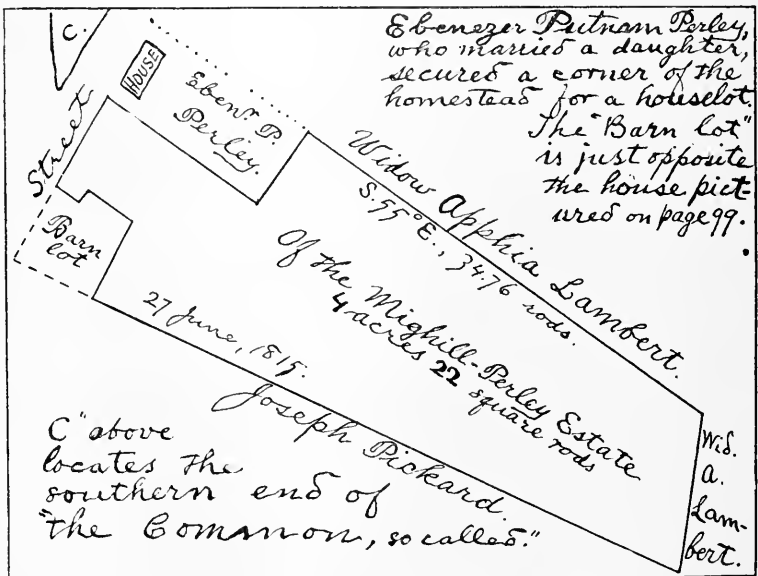 C.
HOUSE
Eben.r P.
Perley.
Ebenezer Putnam Perley,
who married a daughter,
secured a corner of the
homestead for a houselot.
The "Barn lot"
is just opposite
the house pict-
ured on page 99.
Street
Barn
lot
Widow Apphia Lambert.
S. 55° E., 34.76 rods.
Of the Mighill-Perley Estate
4 acres 22 square rods
27 June, 1815.
Joseph Pickard.
Wid.
A.
Lam-
bert.
C" above
locates the
southern end of
"the Common, so called."